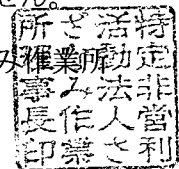 せん。
み作業所
特定非営利
活動法人さ
ざなみ作業
所理事長印